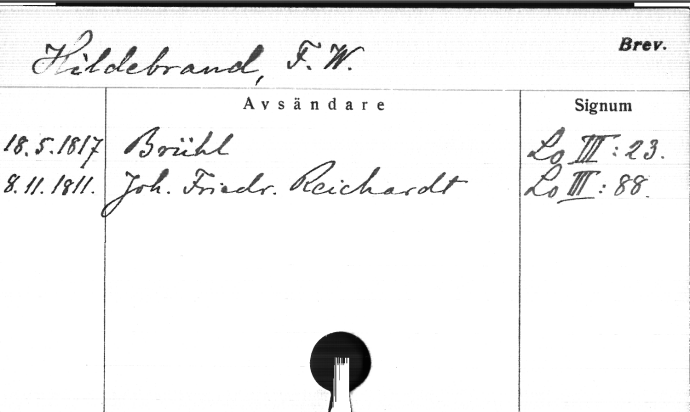 Hildebrand, F. W.
Brev.
Avsändare
Signum
18.5.1817 Brühl Lo III: 23.
8.11.1811. Joh. Friedr. Reichardt Lo III: 88.